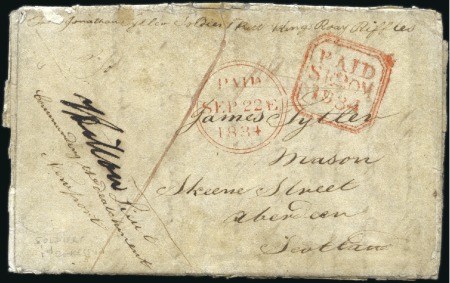 From Jonathan Tytler Soldier Kings Royal Rifles
PAID
SP
1834
PAID
SEP 22 E
1834
James Tytler
Mason
Skeene Street
Aberdeen
Scotland
Lieut
Commanding the detachment
Newport